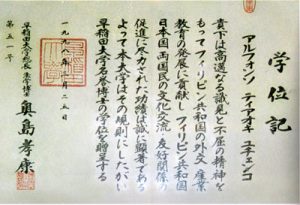 学位記
アルフォンソ ティアオキ ユチェンコ
貴下は高邁なる識見と不屈の精神を
もってフィリピン共和国の外交 産業
教育の発展に貢献し フィリピン共和国
日本国 両国民の文化交流 友好関係の
促進に尽力された功績は誠に顕著である
よって本大学はその規則にしたがい
早稲田大学名誉博士の学位を贈呈する
一九九八年 月二五日
早稲田大学総長 奥島孝康
第五一号